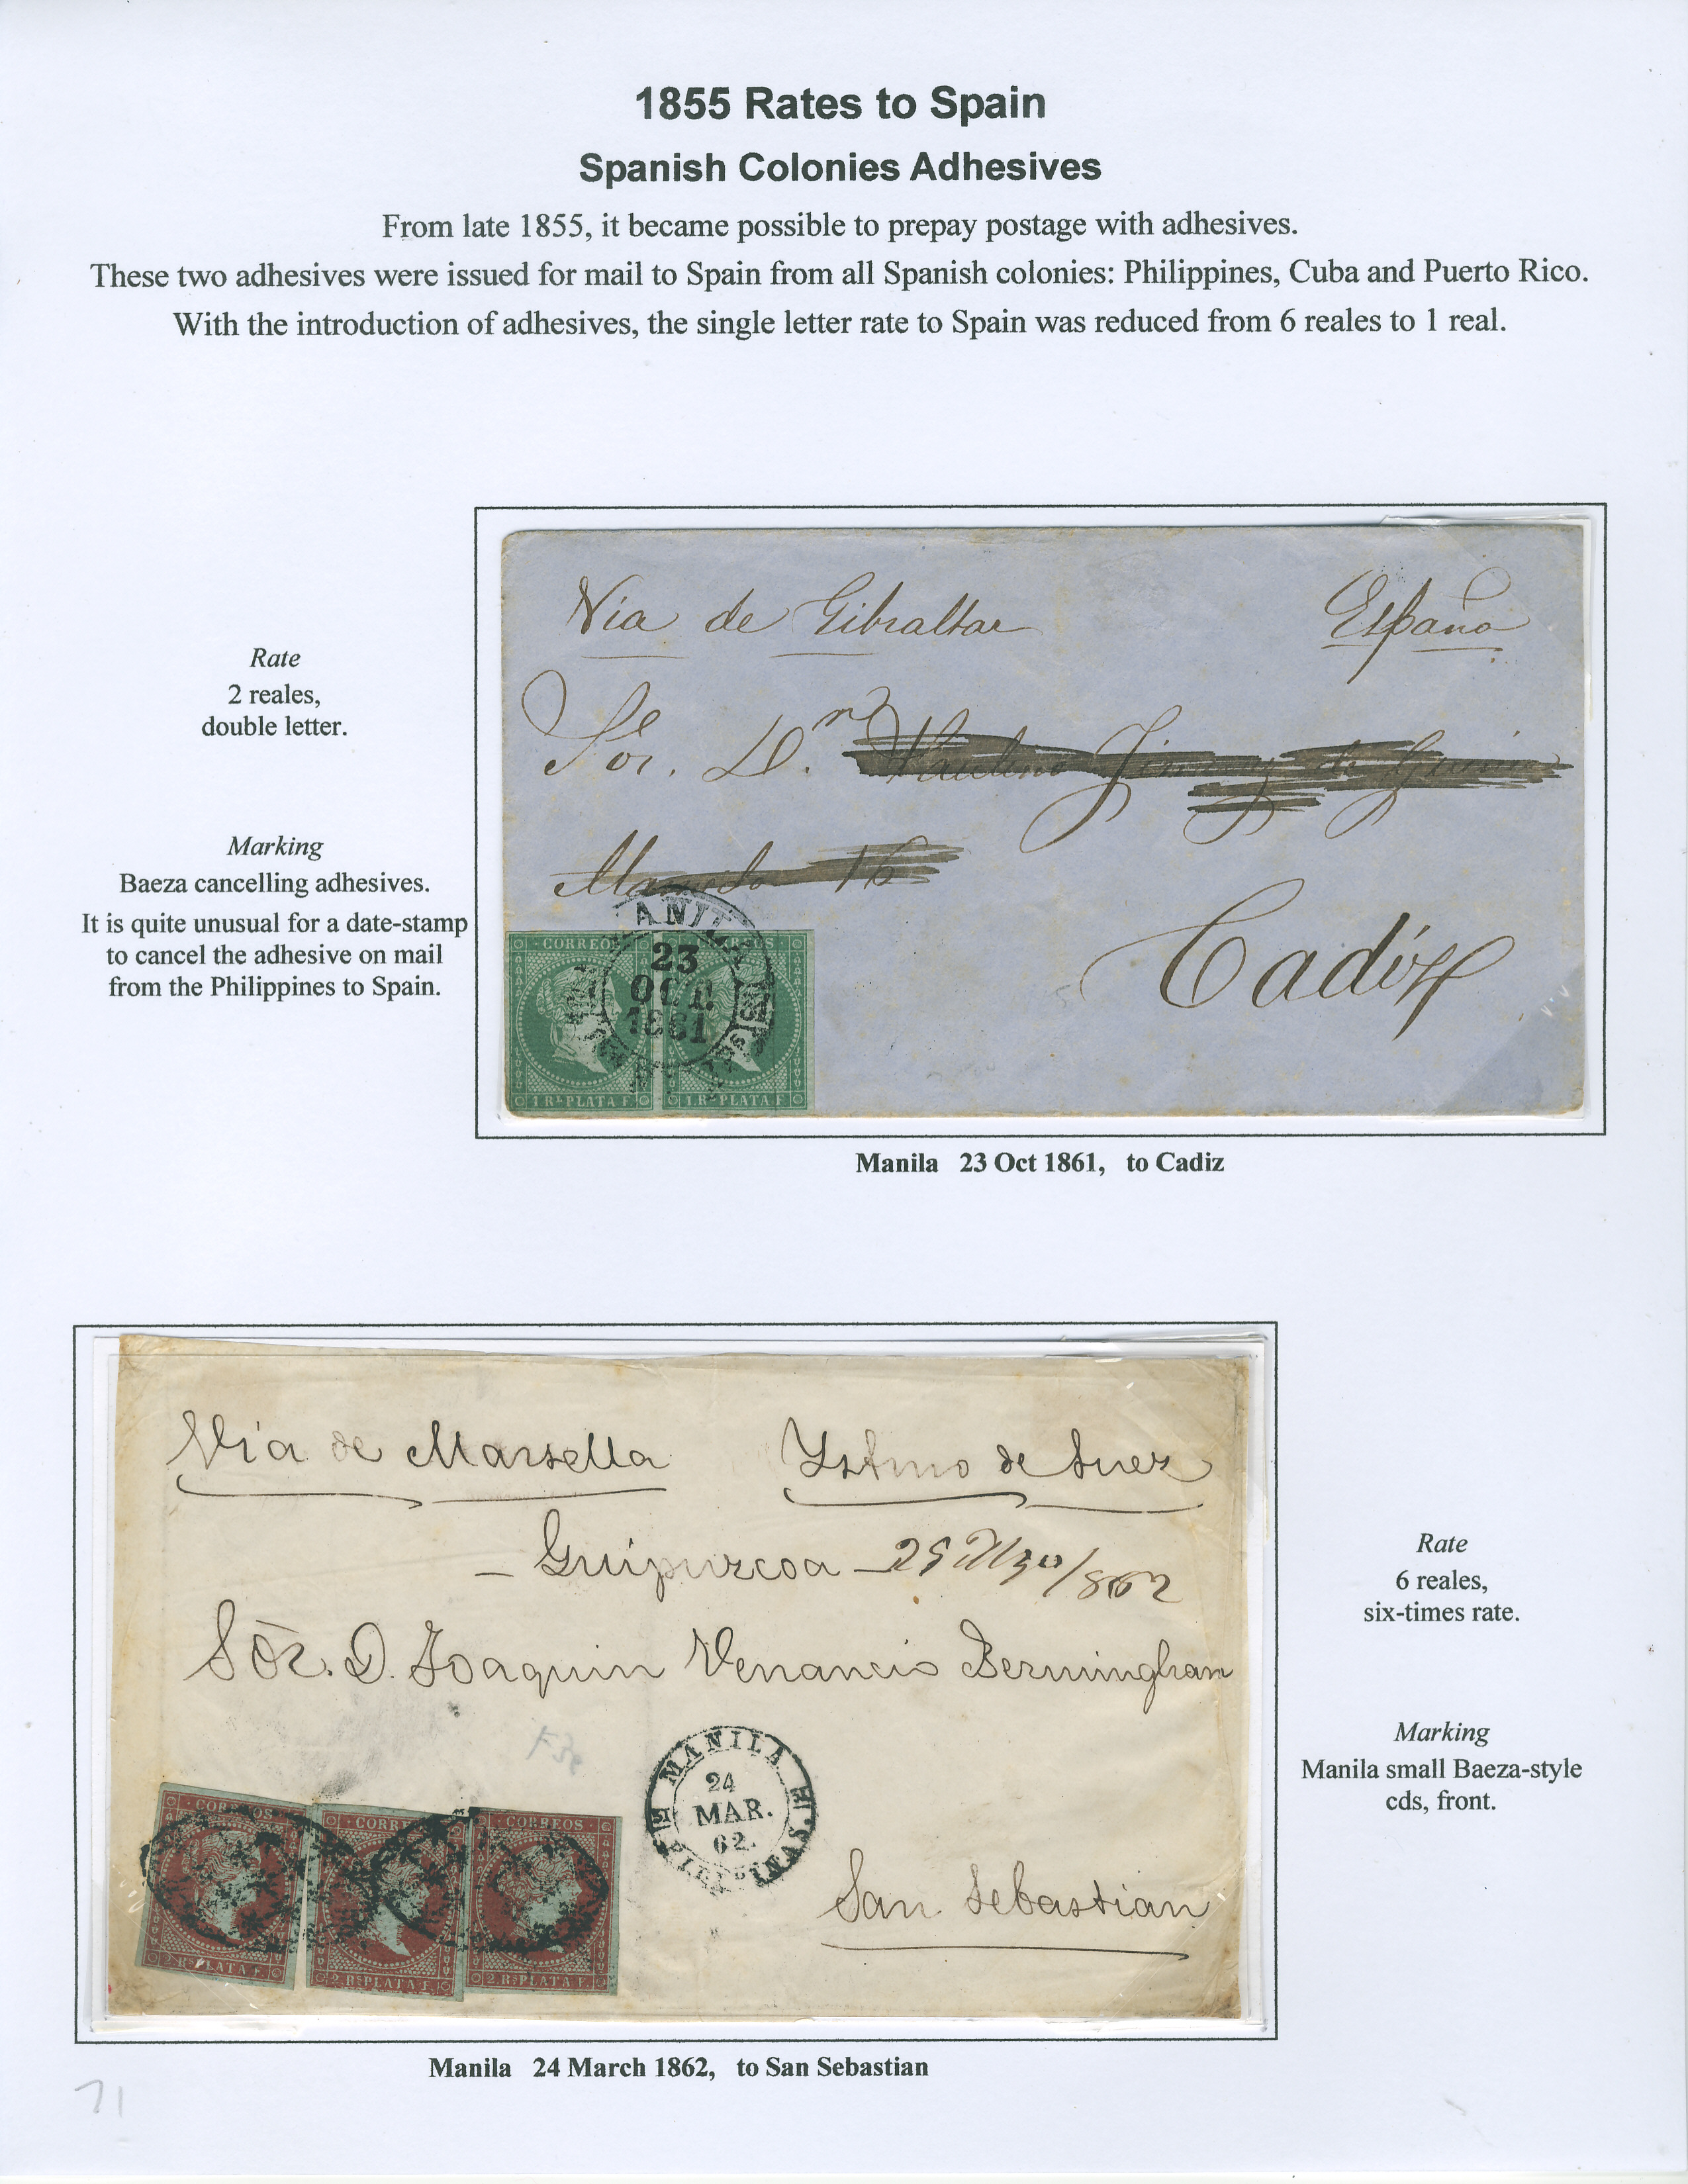 1855 Rates to Spain
Spanish Colonies Adhesives
From late 1855, it became possible to prepay postage with adhesives.
These two adhesives were issued for mail to Spain from all Spanish colonies: Philippines, Cuba and Puerto Rico.
With the introduction of adhesives, the single letter rate to Spain was reduced from 6 reales to 1 real.
Rate
2 reales,
double letter.
Marking
Baeza cancelling adhesives.
It is quite unusual for a date-stamp
to cancel the adhesive on mail
from the Philippines to Spain.
Via de Gibraltar España
Sor. Dn
16
Cadiz
CORREOS
1 Rl PLATA F.
1 Rl PLATA F.
23
OCT
1861
Manila 23 Oct 1861, to Cadiz
Via de Marsella Ystmo de Suez
Guipuzcoa 25 Mzo/862
Sōr. D. Joaquin Venancio Bermingham
MANILA
24
MAR.
62.
San Sebastian
CORREOS
CORREOS
CORREOS
2 Rs PLATA F.
2 Rs PLATA F.
2 Rs PLATA F.
Rate
6 reales,
six-times rate.
Marking
Manila small Baeza-style
cds, front.
Manila 24 March 1862, to San Sebastian
71